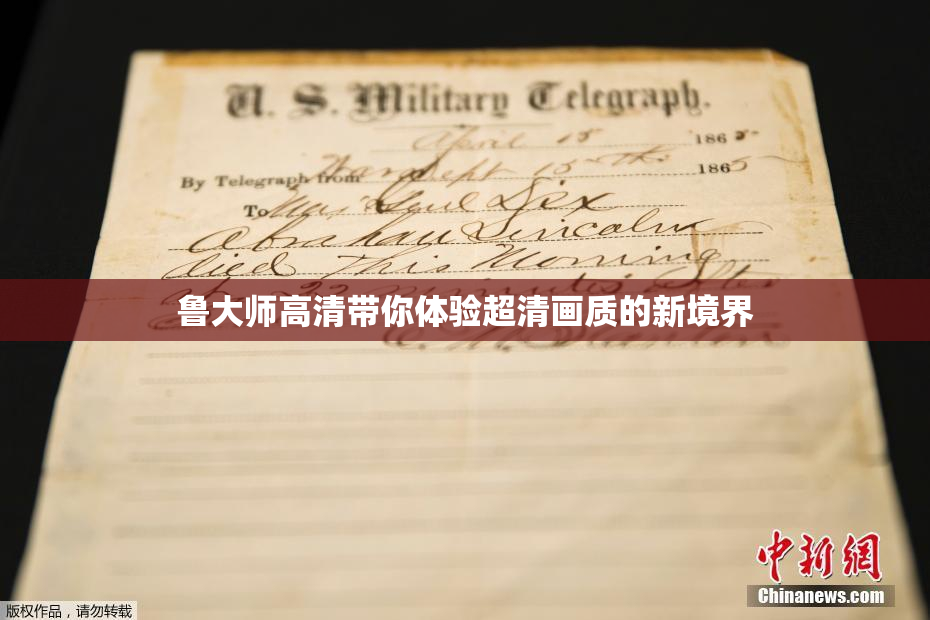 U. S. Military Telegraph.
April 15 1865
By Telegraph from War Dept 15th 1865
To Maj Genl Dix
Abraham Lincoln
died This Morning
at 22 minutes after
鲁大师高清带你体验超清画质的新境界
E. M. Stanton
中新网
Chinanews.com
版权作品，请勿转载